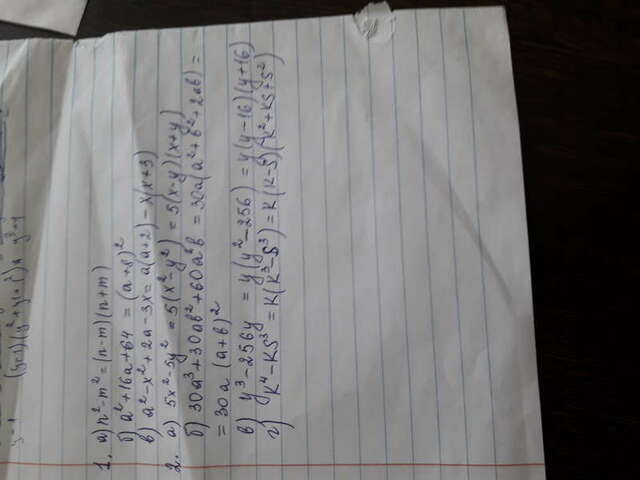 (y-1)(y²+y+1²) y³-1
1. а) n²-m² = (n-m)(n+m)
б) a²+16a+64 = (a+8)²
в) a²-x²+2a-3x = a(a+2)-x(x+3)
2. а) 5x²-5y² = 5(x²-y²) = 5(x-y)(x+y)
б) 30a³+30ab²+60a²b = 30a(a²+b²+2ab) =
= 30a (a+b)²
в) y³-256y = y(y²-256) = y(y-16)(y+16)
г) K⁴-KS³ = K(K³-S³) = K(K-S)(K²+KS+S²)